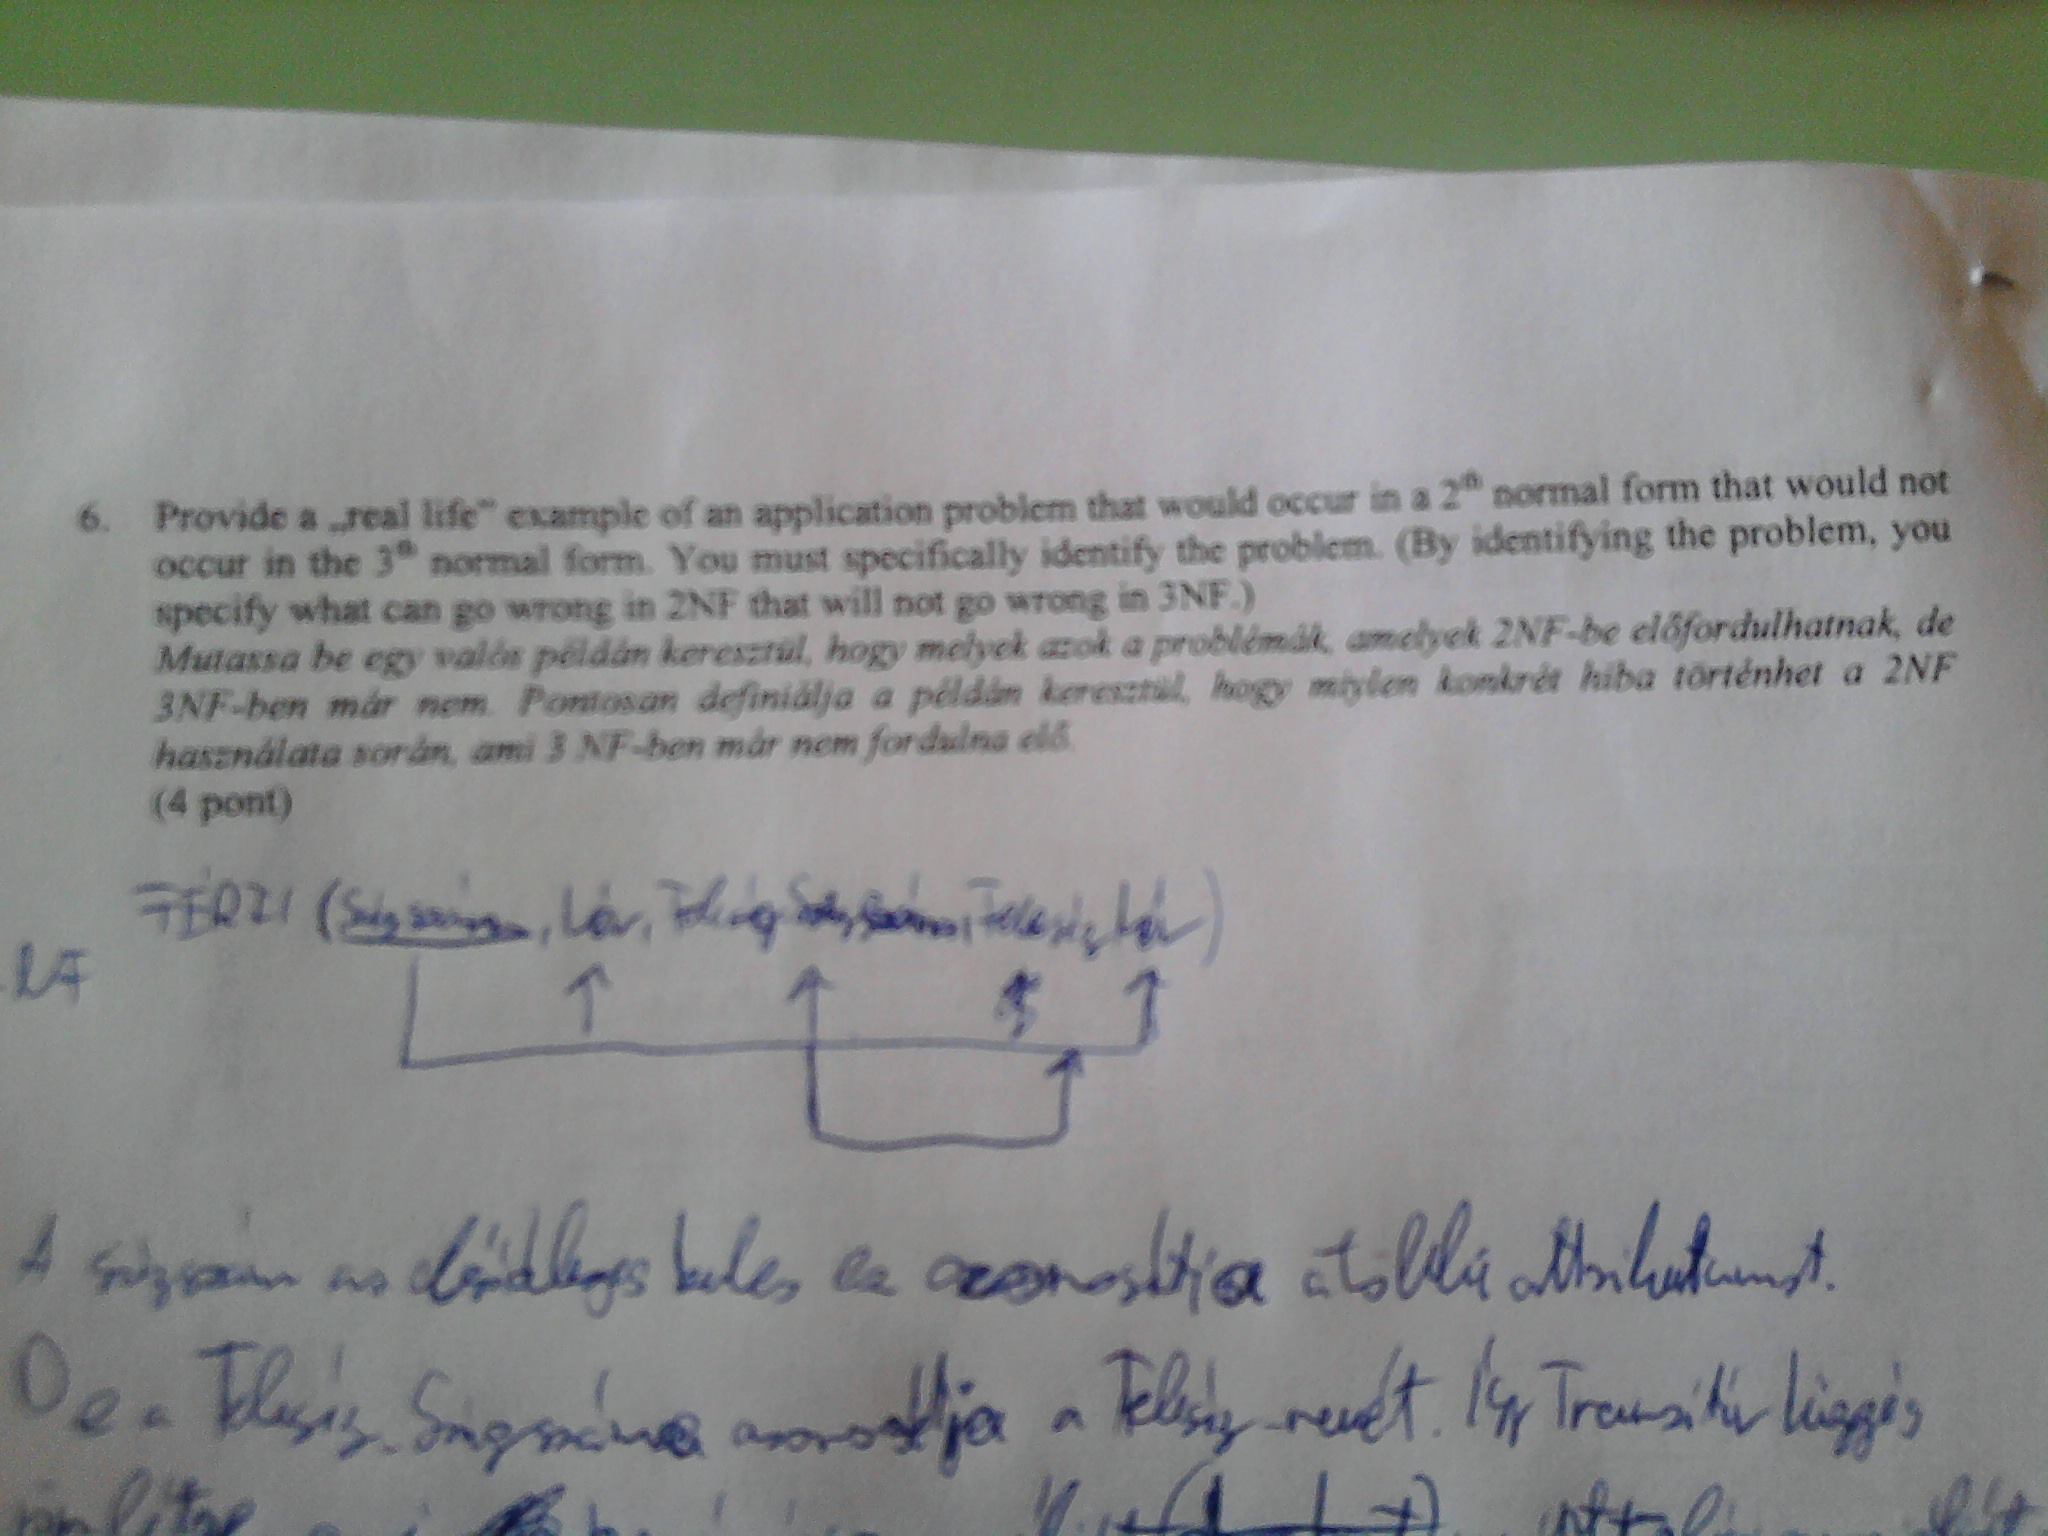 6. Provide a „real life" example of an application problem that would occur in a 2th normal form that would not
occur in the 3th normal form. You must specifically identify the problem. (By identifying the problem, you
specify what can go wrong in 2NF that will not go wrong in 3NF.)
Mutassa be egy valós példán keresztül, hogy melyek azok a problémák, amelyek 2NF-be előfordulhatnak, de
3NF-ben már nem. Pontosan definiálja a példán keresztül, hogy milyen konkrét hiba történhet a 2NF
használata során, ami 3 NF-ben már nem fordulna elő.
(4 pont)
FÉRZI (Szigszám, Név, Feleség Szigszám, Feleség Név)
NF
A szigszám az elsődleges kulcs ez azonosítja a többi attributumot.
De a Feleség Szigszáma azonosítja a Feleség nevét. Így Tranzitív függés